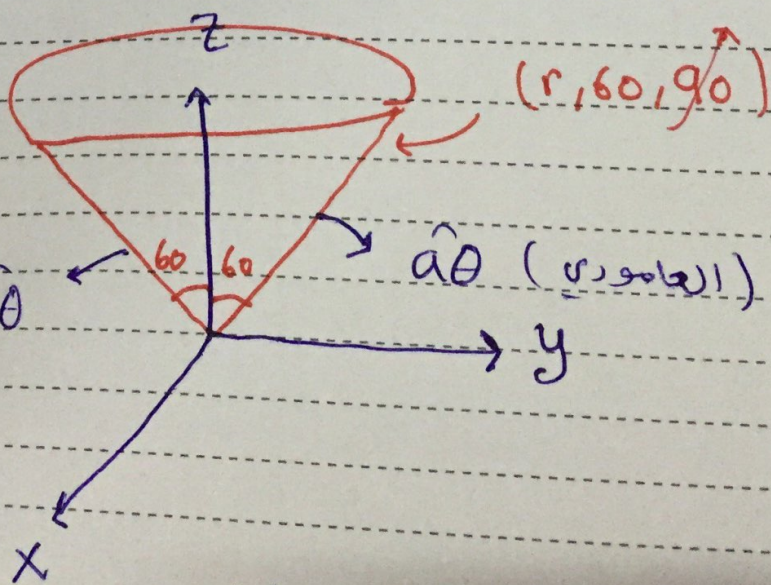 z
(r, 60, 90)
60 60
âθ (العامودي)
θ
y
x